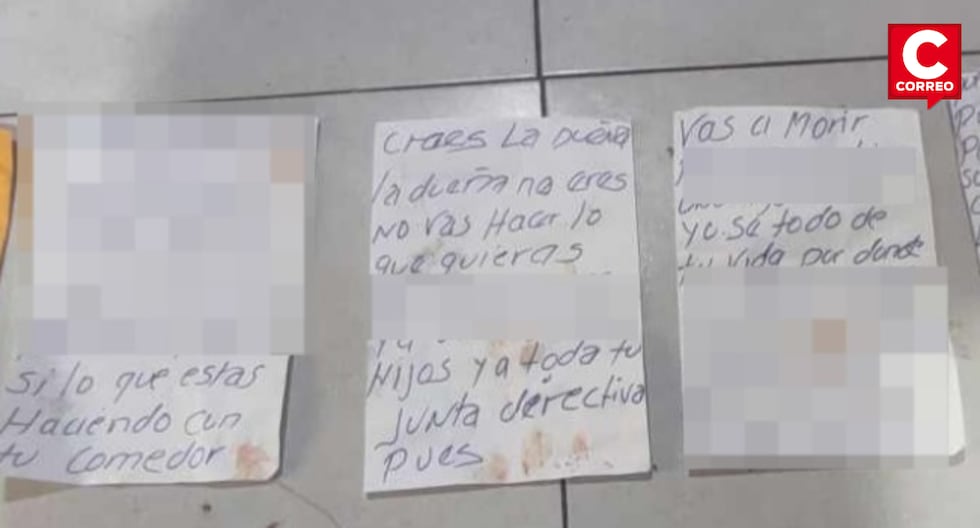 CORREO
si lo que estas
Haciendo con
tu comedor
craes La Dueña
la dueña no eres
No vas Hacer lo
que quieras
Hijos y a toda tu
JUNta derectiva
pues
Vas a Morir
yo sé todo de
tu vida por donde